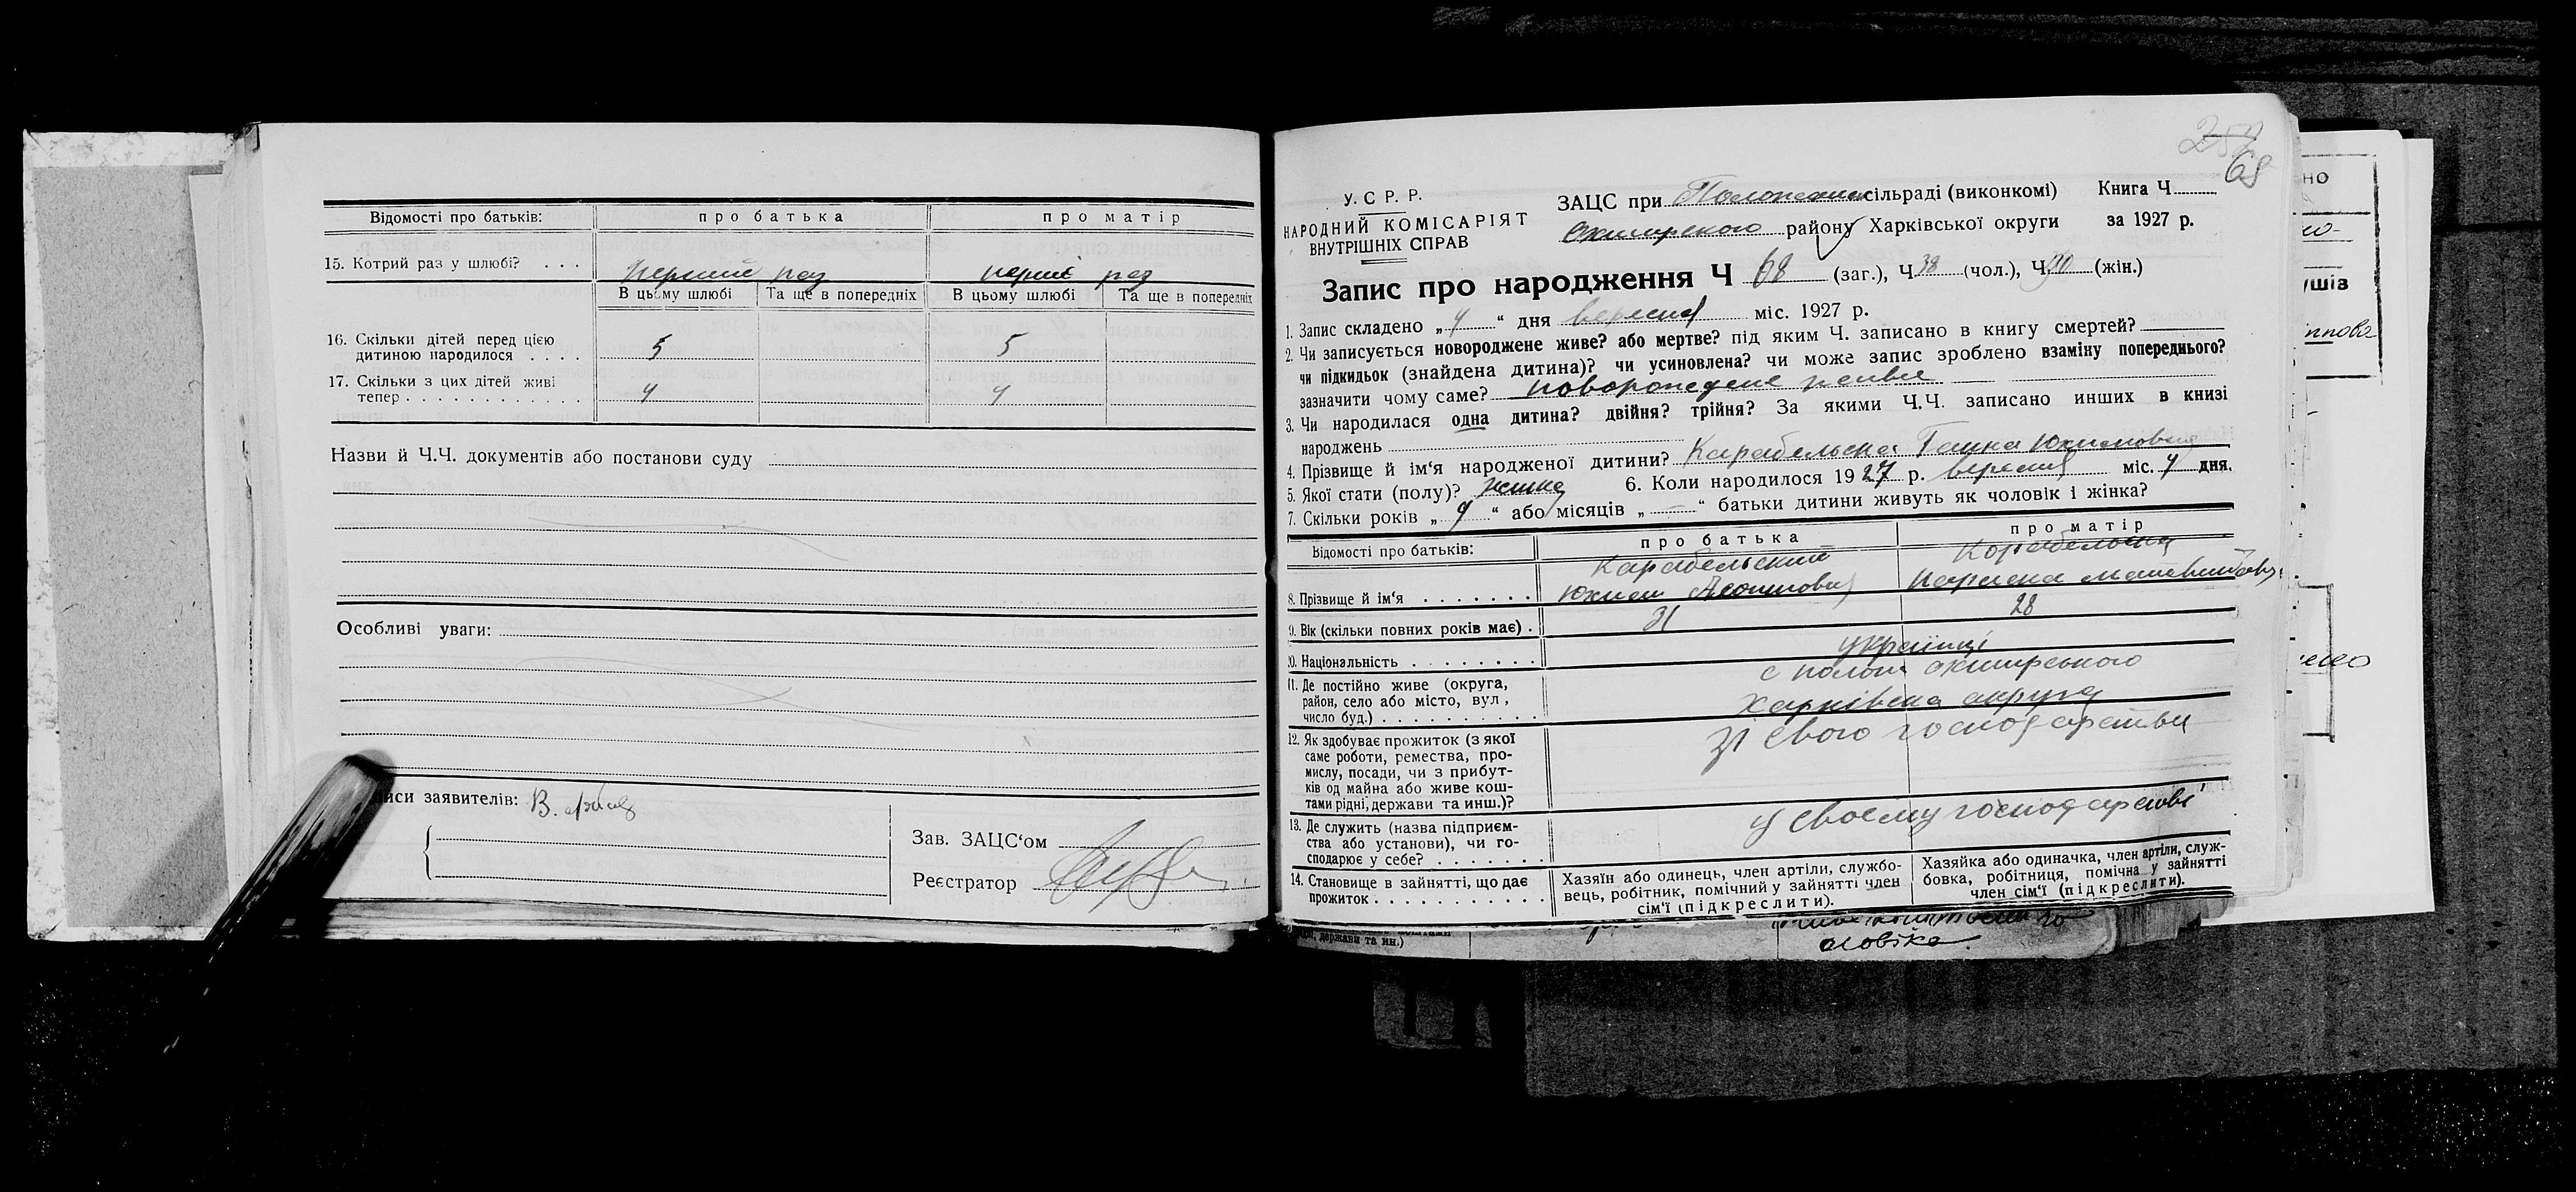 Відомості про батьків: про батька про матір
15. Котрий раз у шлюбі? . . . перший раз перші раз
В цьому шлюбі Та ще в попередніх В цьому шлюбі Та ще в попередніх
16. Скільки дітей перед цією
дитиною народилося . . . . 5 5
17. Скільки з цих дітей живі
тепер . . . . . . . . . . . . 4 4
Назви й Ч.Ч. документів або постанови суду
Особливі уваги:
иси заявителів:
Зав. ЗАЦС‘ом
Реєстратор
257
69
У. С Р. Р.
НАРОДНИЙ КОМІСАРІЯТ
ВНУТРІШНІХ СПРАВ
ЗАЦС при сільраді (виконкомі) Книга Ч
району Харківської округи за 1927 р.
Запис про народження Ч 68 (заг.), Ч 38 (чол.), Ч (жін.)
1. Запис складено „ 4 “ дня вересня міс. 1927 р.
2. Чи записується новороджене живе? або мертве? під яким Ч. записано в книгу смертей?
чи підкидьок (знайдена дитина)? чи усиновлена? чи може запис зроблено взаміну попереднього?
зазначити чому саме? новорожедене живе
3. Чи народилася одна дитина? двійня? трійня? За якими Ч.Ч. записано инших в книзі
народжень
4. Прізвище й ім‘я народженої дитини? Карабельська Ганна Юхимовна
5. Якої стати (полу)? жінка 6. Коли народилося 1927 р. вересня міс. 4 дня.
7. Скільки років „ 9 “ або місяців „ — “ батьки дитини живуть як чоловік і жінка?
Відомості про батьків: про батька про матір
Карабельский Корабельска
8. Прізвище й ім‘я . . . . . . . Юхим
9. Вік (скільки повних років має) . 31 28
10. Національність . . . . . . . . українці
11. Де постійно живе (округа,
район, село або місто, вул,
число буд.) . . . . . . . . . . . Харківска округа
12. Як здобуває прожиток (з якої зі свого господарства
саме роботи, ремества, про-
мислу, посади, чи з прибут-
ків од майна або живе кош-
тами рідні, держави та инш.)?
13. Де служить (назва підприєм- у своєму господарстві
ства або установи), чи го-
сподарює у себе? . . . . . . .
14. Становище в зайнятті, що дає
прожиток . . . . . . . . . . . .
Хазяїн або одинець, член артіли, службо-
вець, робітник, помічний у зайнятті член
сім‘ї (підкреслити).
Хазяйка або одиначка, член артіли, служ-
бовка, робітниця, помічна у зайнятті
член сім‘ї (підкреслити).
держави та ин.)